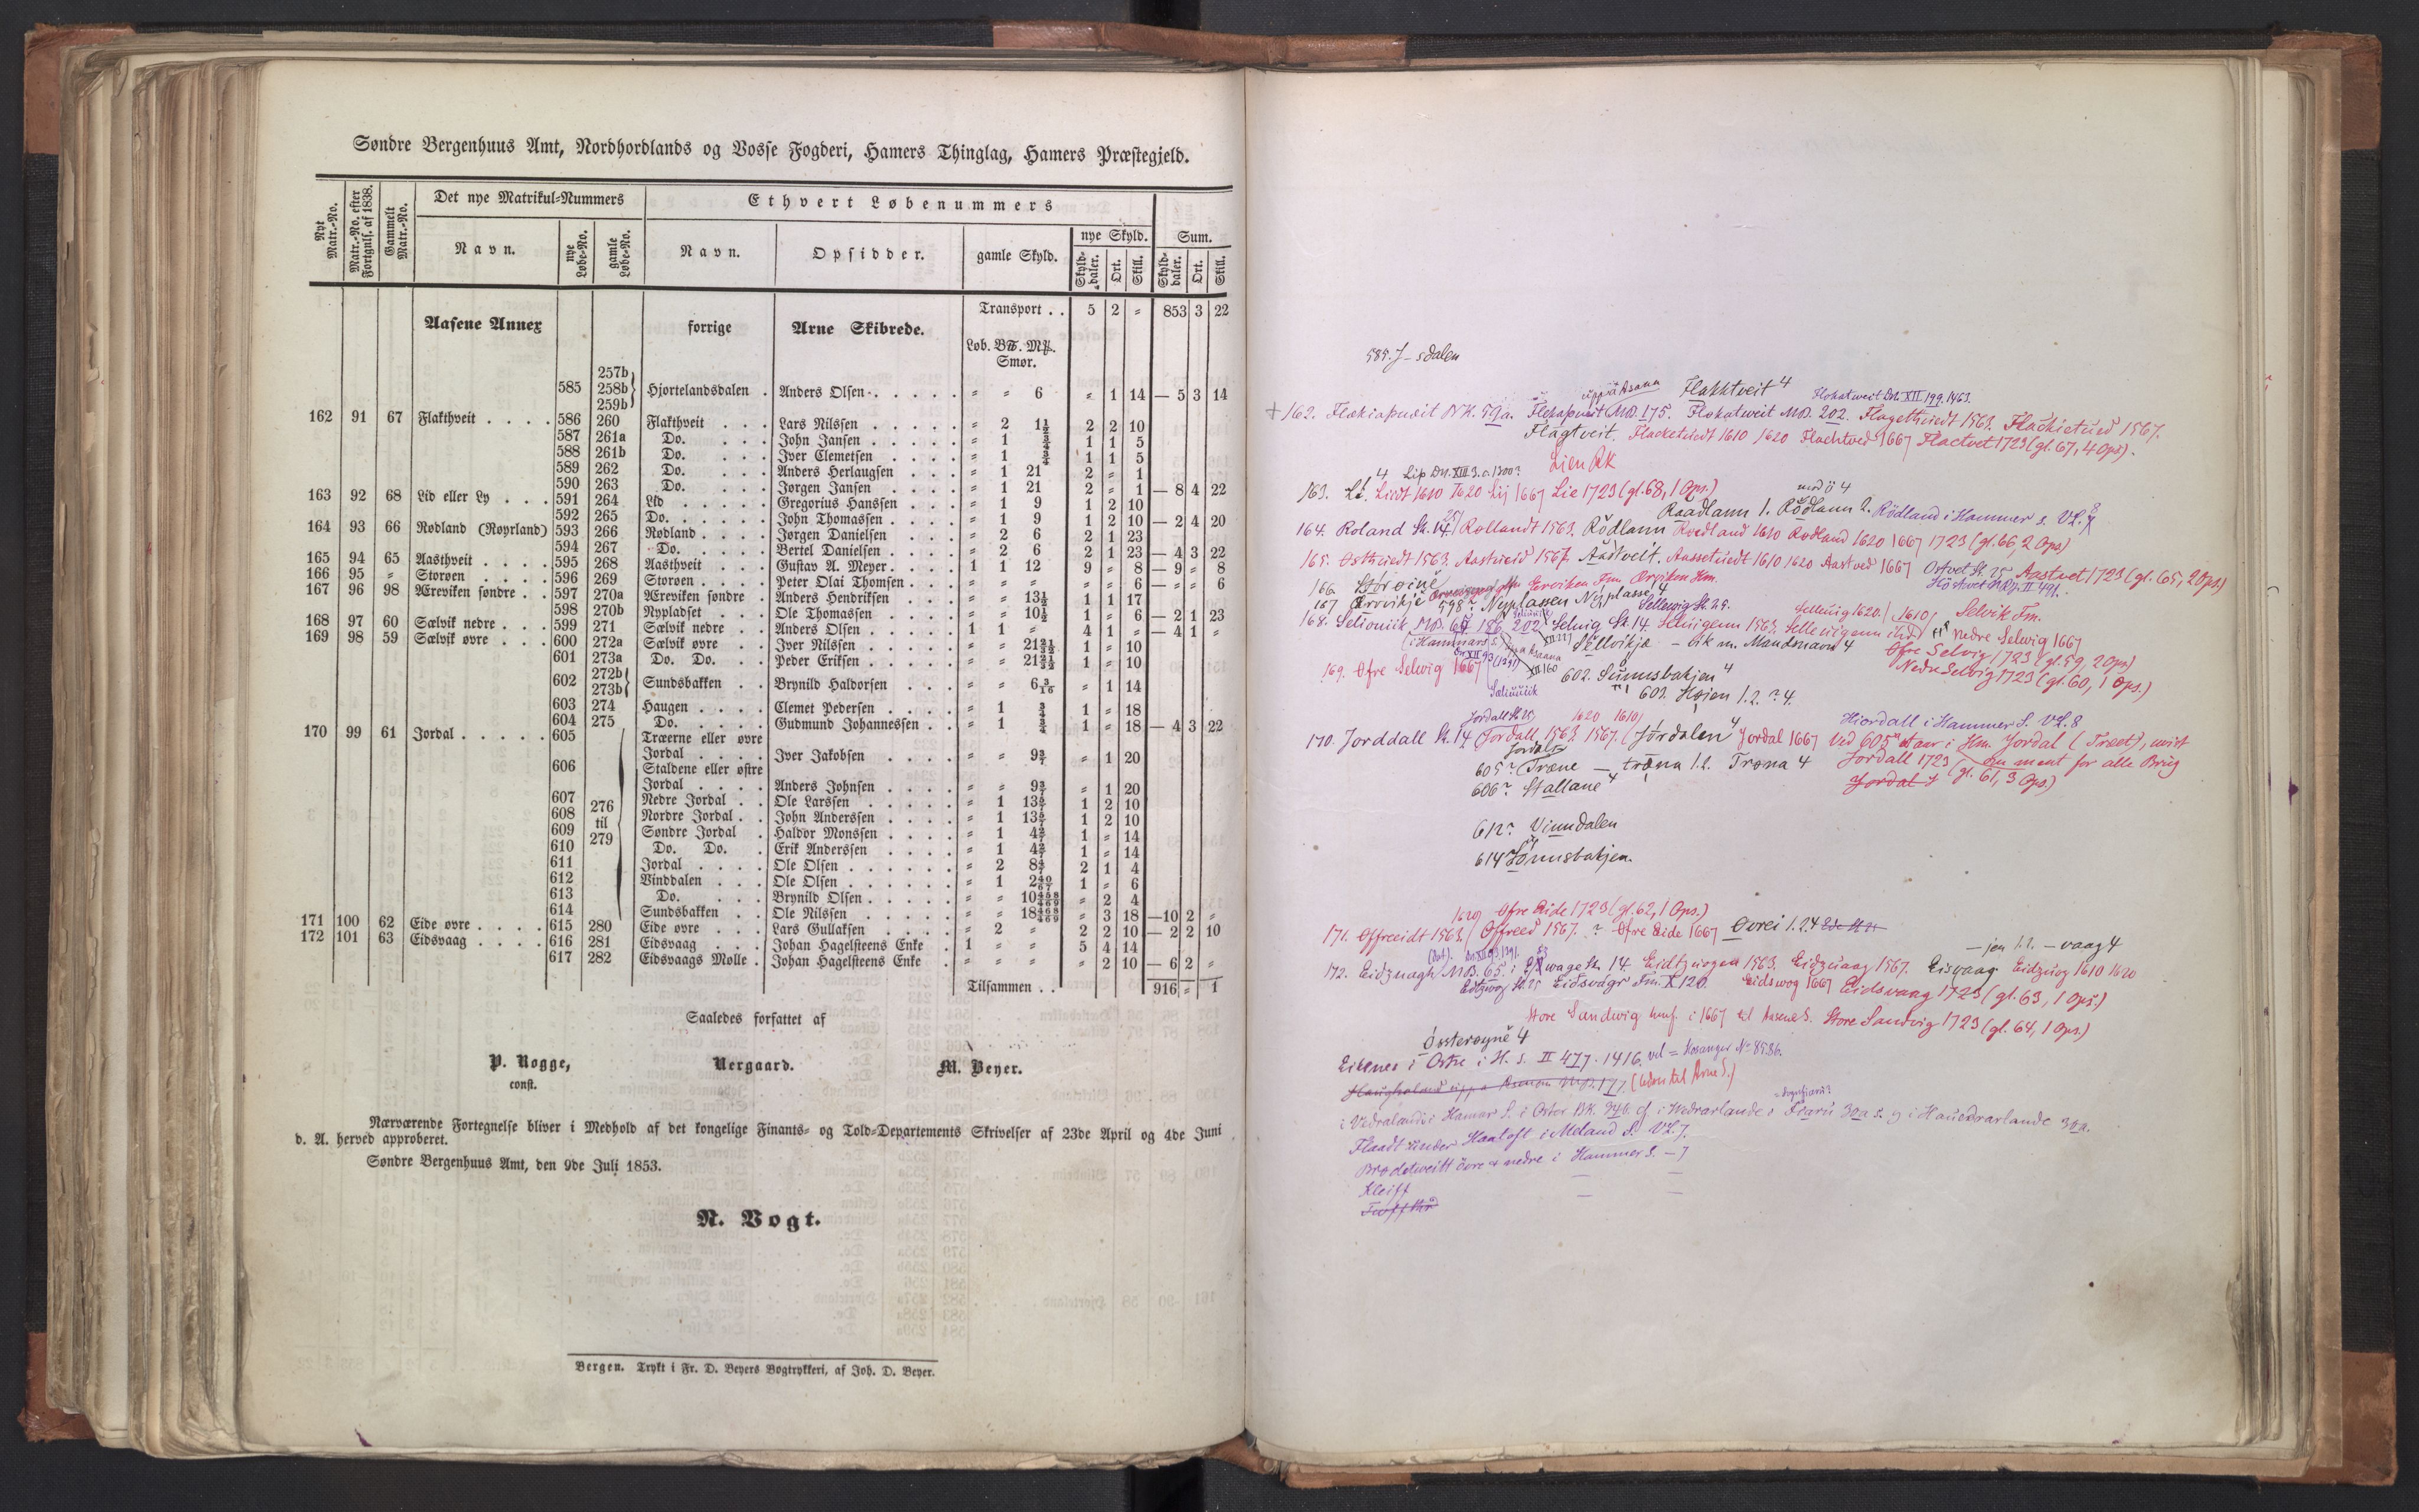 Søndre Bergenhuus Amt, Nordhordlands og Vosse Fogderi, Hamers Thinglag, Hamers Præstegjeld.
Nyt Matr.-No. Matr.-No. efter Fortegnls. af 1838. Gammelt Matr.-No. Det nye Matrikul-Nummers Ethvert Løbenummers
Navn. nye Løbe-No. gamle Løbe-No. Navn. Opsidder. gamle Skyld. nye Skyld. Sum.
Skyld-daler. Ort. Skill. Skyld-daler. Ort. Skill.
Transport . . 5 2 〃 853 3 22
Aasene Annex forrige Arne Skibrede.
Løb. B℔. M℔.
Smør.
585 257b 258b 259b Hjortelandsdalen . Anders Olsen . . . . . 〃 〃 6 〃 1 14 — 5 3 14
162 91 67 Flakthveit . . . . 586 260 Flakthveit . . . Lars Nilssen . . . . . 〃 2 1½ 2 2 10
587 261a Do. . . . John Jansen . . . . . 〃 1 ¾ 1 1 5
588 261b Do. . . . Iver Clemetsen . . . . 〃 1 ¾ 1 1 5
589 262 Do. . . . Anders Herlaugsen . . . 〃 1 21 2 〃 1
590 263 Do. . . . Jørgen Jansen . . . . 〃 1 21 2 〃 1 — 8 4 22
163 92 68 Lid eller Ly . . . 591 264 Lid . . . . . Gregorius Hanssen . . . 〃 1 9 1 2 10
592 265 Do. . . . . . John Thomassen . . . . 〃 1 9 1 2 10 — 2 4 20
164 93 66 Rødland (Røyrland) 593 266 Rødland . . . . Jørgen Danielsen . . . 〃 2 6 2 1 23
594 267 Do. . . . . Bertel Danielsen . . . . 〃 2 6 2 1 23 — 4 3 22
165 94 65 Aasthveit . . . . 595 268 Aasthveit . . . Gustav A. Meyer. . . . 1 1 12 9 〃 8 — 9 〃 8
166 95 〃 Storøen . . . . 596 269 Storøen . . . . Peter Olai Thomsen . . . 〃 〃 〃 〃 〃 6 — 〃 〃 6
167 96 98 Æreviken søndre . . 597 270a Æreviken søndre . Anders Hendriksen . . . 〃 〃 13½ 1 1 17
598 270b Nypladset . . . Ole Thomassen . . . . 〃 〃 10½ 1 〃 6 — 2 1 23
168 97 60 Sælvik nedre . . . 599 271 Sælvik nedre . . Anders Olsen . . . . . 1 1 〃 4 1 〃 — 4 1 〃
169 98 59 Sælvik øvre . . . 600 272a Sælvik øvre . . Iver Nilssen . . . . . 〃 〃 21 21/32 1 〃 10
601 273a Do. Do. . . Peder Eriksen . . . . . 〃 〃 21 21/32 1 〃 10
602 272b 273b Sundsbakken . . Brynild Haldorsen . . . 〃 〃 6 3/16 〃 1 14
603 274 Haugen . . . . Clemet Pedersen . . . . 〃 1 ¾ 1 〃 18
604 275 Do. . . . . Gudmund Johannessen . . 〃 1 ¾ 1 〃 18 — 4 3 22
170 99 61 Jordal . . . . . 605 Træerne eller øvre
Jordal . . . . Iver Jakobsen . . . . 〃 〃 9 3/7 〃 1 20
606 Staldene eller østre
Jordal . . . . Anders Johnsen . . . . 〃 〃 9 3/7 〃 1 20
607 276 til 279 Nedre Jordal . . Ole Larssen . . . . . 〃 1 13 5/7 1 2 10
608 Nordre Jordal . . John Anderssen . . . . 〃 1 13 5/7 1 2 10
609 Søndre Jordal . Haldor Monssen . . . . 〃 1 4 2/7 1 〃 14
610 Do. Do. . Erik Anderssen . . . . 〃 1 4 2/7 1 〃 14
611 Jordal . . . . Ole Olsen . . . . . . 〃 2 8 4/7 2 1 4
612 Vinddalen . . . Ole Olsen . . . . . . 〃 1 2 40/67 1 〃 6
613 Do. . . . Brynild Olsen . . . . . 〃 〃 10 458/469 〃 2 4
614 Sundsbakken . . Ole Nilssen . . . . . 〃 〃 18 468/469 〃 3 18 —10 2 〃
171 100 62 Eide øvre . . . . 615 280 Eide øvre . . . Lars Gullaksen . . . . 〃 2 〃 2 2 10 — 2 2 10
172 101 63 Eidsvaag . . . . 616 281 Eidsvaag . . . Johan Hagelsteens Enke . 1 〃 〃 5 4 14
617 282 Eidsvaags Mølle . Johan Hagelsteens Enke . 〃 〃 〃 〃 2 10 — 6 2 〃
Tilsammen . . 916 〃 1
Saaledes forfattet af
P. Rogge, Nergaard. M. Beyer.
const.
Nærværende Fortegnelse bliver i Medhold af det kongelige Finants- og Told-Departements Skrivelser af 23de April og 4de Juni
d. A. herved approberet.
Søndre Bergenhuus Amt, den 9de Juli 1853.
N. Vogt.
Bergen. Trykt i Fr. D. Beyers Bogtrykkeri, af Joh. D. Beyer.
585. J-sdalen
Flakktveit 4 Flokatweit Dn. XII 199. 1463.
+162. Flokiaþueit BK. 59a. Flokaþueit MB. 175. Flokatweit MB. 202. Flagethuedt 1563. Flackietued 1567.
Flagtveit. Flacketuedt 1610 1620 Flachtved 1667 Flactvet 1723 (gl. 67, 4 Ops).
Lien RK
4 Lip Dn. XIII 3. c. 1300?
163. Li. Liedt 1610 1620 Lij 1667 Lie 1723 (gl. 68, 1 Ops.)
med ö 4
Raadlann 1. Rödlann 2. Rödland i Hammer s. VL. 8
164. Roland St. 14 Rollandt 1563. Rödlann Roedland 1610 Rodland 1620 1667 1723 (gl. 66, 2 Ops)
165. Osthuedt 1563. Aastueid 1567. Aastveit. Aassetuedt 1610 1620 Aastved 1667 Ostvet St. 25 Aastvet 1723 (gl. 65, 2 Ops)
166. Störoine
167 Ærvikje Erviken Fm. Ørviken Hm.
598? Nyplassen Nyplasse 4 Sellewig St. 25.
Selleuig 1620. 1610 Selvik Fm.
168. Seliouiik MB. 186. 202 Seluig St. 14 Seluigenn 1563. Nedre Selwig 1667
Sellvikje – ik m. Mandsnavn 4 Øfre Selvig 1723 (gl. 59, 2 Ops)
169. Øfre Selwig 1667 602. Sunnsbakjen 4 Nedre Selvig 1723 (gl. 60, 1 Ops.)
603. Hojen 1. 2. ? 4.
Jordall St. 25 1620 1610 Hiordall i Hammer S. VL. 8
170. Jorddall St. 14 Jordall 1563 1567. Jordalen 4 Jordal 1667 Ved 605 staar i Hm. Jordal (Træet), mist
Jordall 1723 er ment for alle Brug
(gl. 61, 3 Ops)
605? Træne – træna 1. 2. Træna 4
606? Stallane 4
612? Vinndalen
614 Sunnsbakjen.
1620 Øfre Eide 1723 (gl. 62, 1 Ops.)
171. Offreeidt 1563. Offreed 1567. ? Øfre Eide 1667 Ovrei 1. 2. 4
– jen 1. 2. – vaag 4
172. Eidzuagh MB. 65. i Eidzwage St. 14. Eidtzuogen 1563. Eidzuaag 1567. Eisvaag Eidzuog 1610 1620
Eidtzwog St. 25 Eidsvágr Fm. X 120. Eidswog 1667 Eidsvaag 1723 (gl. 63, 1 Ops.)
Store Sandwig henf. i 1667 til Aasene S. Store Sandvig 1723 (gl. 64, 1 Ops.)
Össteröynė 4
Eikenes i Ostre i H. s. II 477. 1416. vel = Hosanger No 85.86.
i Vedralandi i Hamar S. i Oster BK. 34b. cf. i Wedrarlande i
Flaadt under Haatoft i Meland S. VL. 7.
Brodetweitt övre & nedre i Hammer S. – 7
Kleiff – –